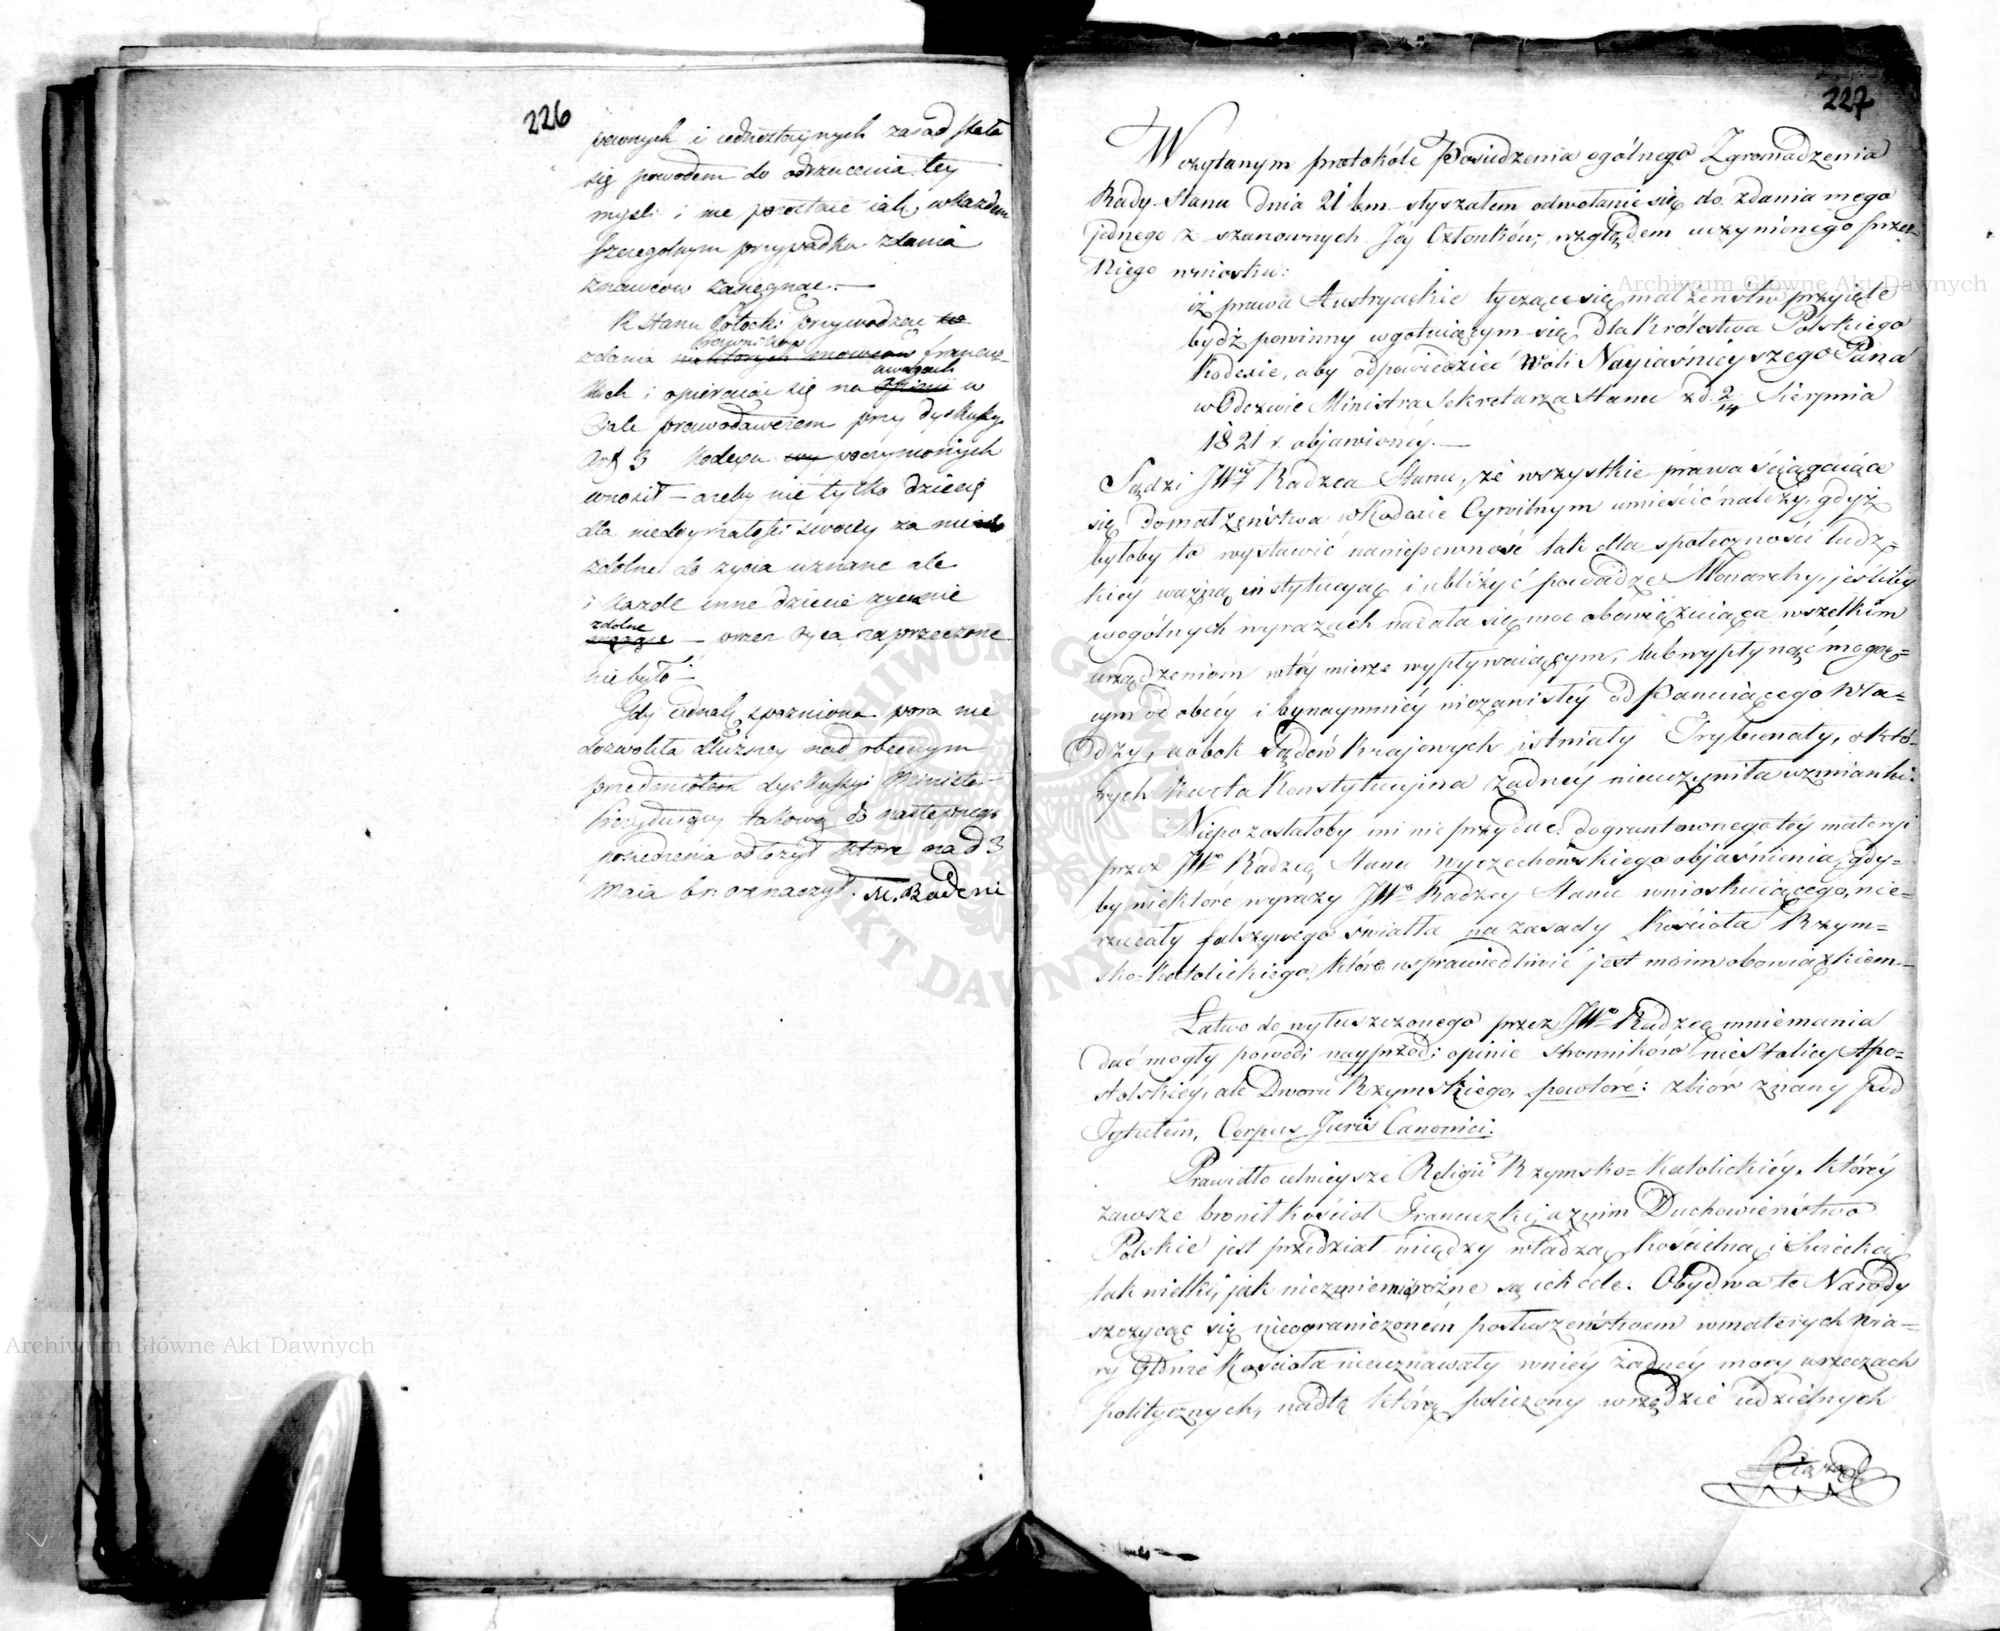 226
pewnych i iednostaynych zasad stała
się powodem do odrzucenia tey
myśli i nie pozostaie iak w każdem
szczególnym przypadku zdania
znawców zasięgnąć.—
R. Stanu Potocki przywodząc
zdania prawników francuz-
kich i opieraiąc się na uwagach w
Ciele prawodawczem przy dyskusyi
Art 3 Kodexu poczynionych
wnosił — ażeby nie tylko dziecię
dla niedoyrzałości swoiey za nie
zdolne do życia uznane ale
i każde inne dziecie życia nie
zdolne — przez Oyca zaprzeczone
nie było —
Gdy iednak spóźniona pora nie
dozwoliła dłużey nad obecnym
przedmiotem dyskussyi Minister
Prezyduiący takową do następnego
posiedzenia odłożył które na d 3
Maia b.r. oznaczył. M. Badeni
227
W czytanym protokóle Posiedzenia ogólnego Zgromadzenia
Rady Stanu dnia 21 b.m. słyszałem odwołanie się do zdania mego
jednego z szanownych Jéj Członków, względem uczynionego przez
Niego wniosku:
iż prawa Austryackie tyczące się małżeństw przyięte
bydź powinny w gotuiącym się dla Królestwa Polskiego
Kodexie, aby odpowiedzieć Woli Nayiaśnieyszego Pana
w Odezwie Ministra Sekretarza Stanu z d. 2/14 Sierpnia
1821 r. objawionéy.—
Sądzi JWny Radzca Stanu, że wszystkie prawa ściągaiące
się do małżeństwa w Kodexie Cywilnym umieścić należy, gdyż
byłoby to wystawić na niepewność tak dla społeczności ludz-
kiéy ważną instytucyą i ubliżyć powadze Monarchy, jeśliby
w ogólnych wyrazach nadała się moc obowiązuiąca wszelkim
urządzeniom w téy mierze wypływaiącym, lub wypłynąć mogą-
cym od obcéy i bynaymniéy niezawisłéy od Panuiącego Wła-
dzy, a obok Sądów Krajowych istniały Trybunały, o któ-
rych Karta Konstytucyjna żadnéy nie uczyniła wzmianki.
Niepozostałoby mi nic przydać do gruntownego téy materyi
przez JWo Radzcę Stanu Wyczechowskiego objaśnienia, gdy-
by niektóre wyrazy JWo Radzcy Stanu wnioskuiącego, nie-
rzucały fałszywego światła na zasady Kościoła Rzym-
sko-Katolickiego, które usprawiedliwić jest moim obowiązkiem.—
Łatwo do wyłuszczonego przez JWo Radzcę mniemania
dać mogły powód: nayprzód: opinie stronników nie Stolicy Apo-
stolskiéy, ale Dworu Rzymskiego, powtóre: zbiór znany pod
Tytułem, Corpus Juris Canonici.
Prawidło celnieysze Religii Rzymsko-Katolickiéy, któréy
zawsze bronił Kościoł Francuzki, a z nim Duchowieństwo
Polskie jest przedział między władzą Kościelną i Świecką
tak wielki, jak niezmiernie różne są ich cele. Obydwa te Narody
szczycąc się nieograniczoném posłuszeństwem w materyach wia-
ry Głowie Kościoła nieuznawały w niéy żadnéy mocy w rzeczach
politycznych, nad tą którą policzony w rzędzie udzielnych